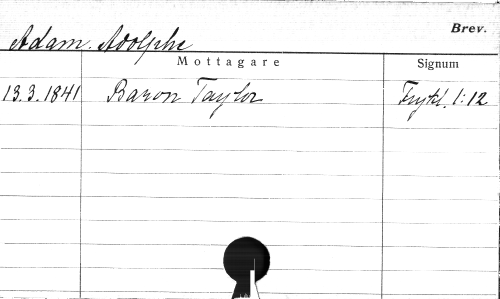 Brev.
Adam. Adolphe
Mottagare Signum
13.3.1841 Baron Taylor Frykl. 1:12